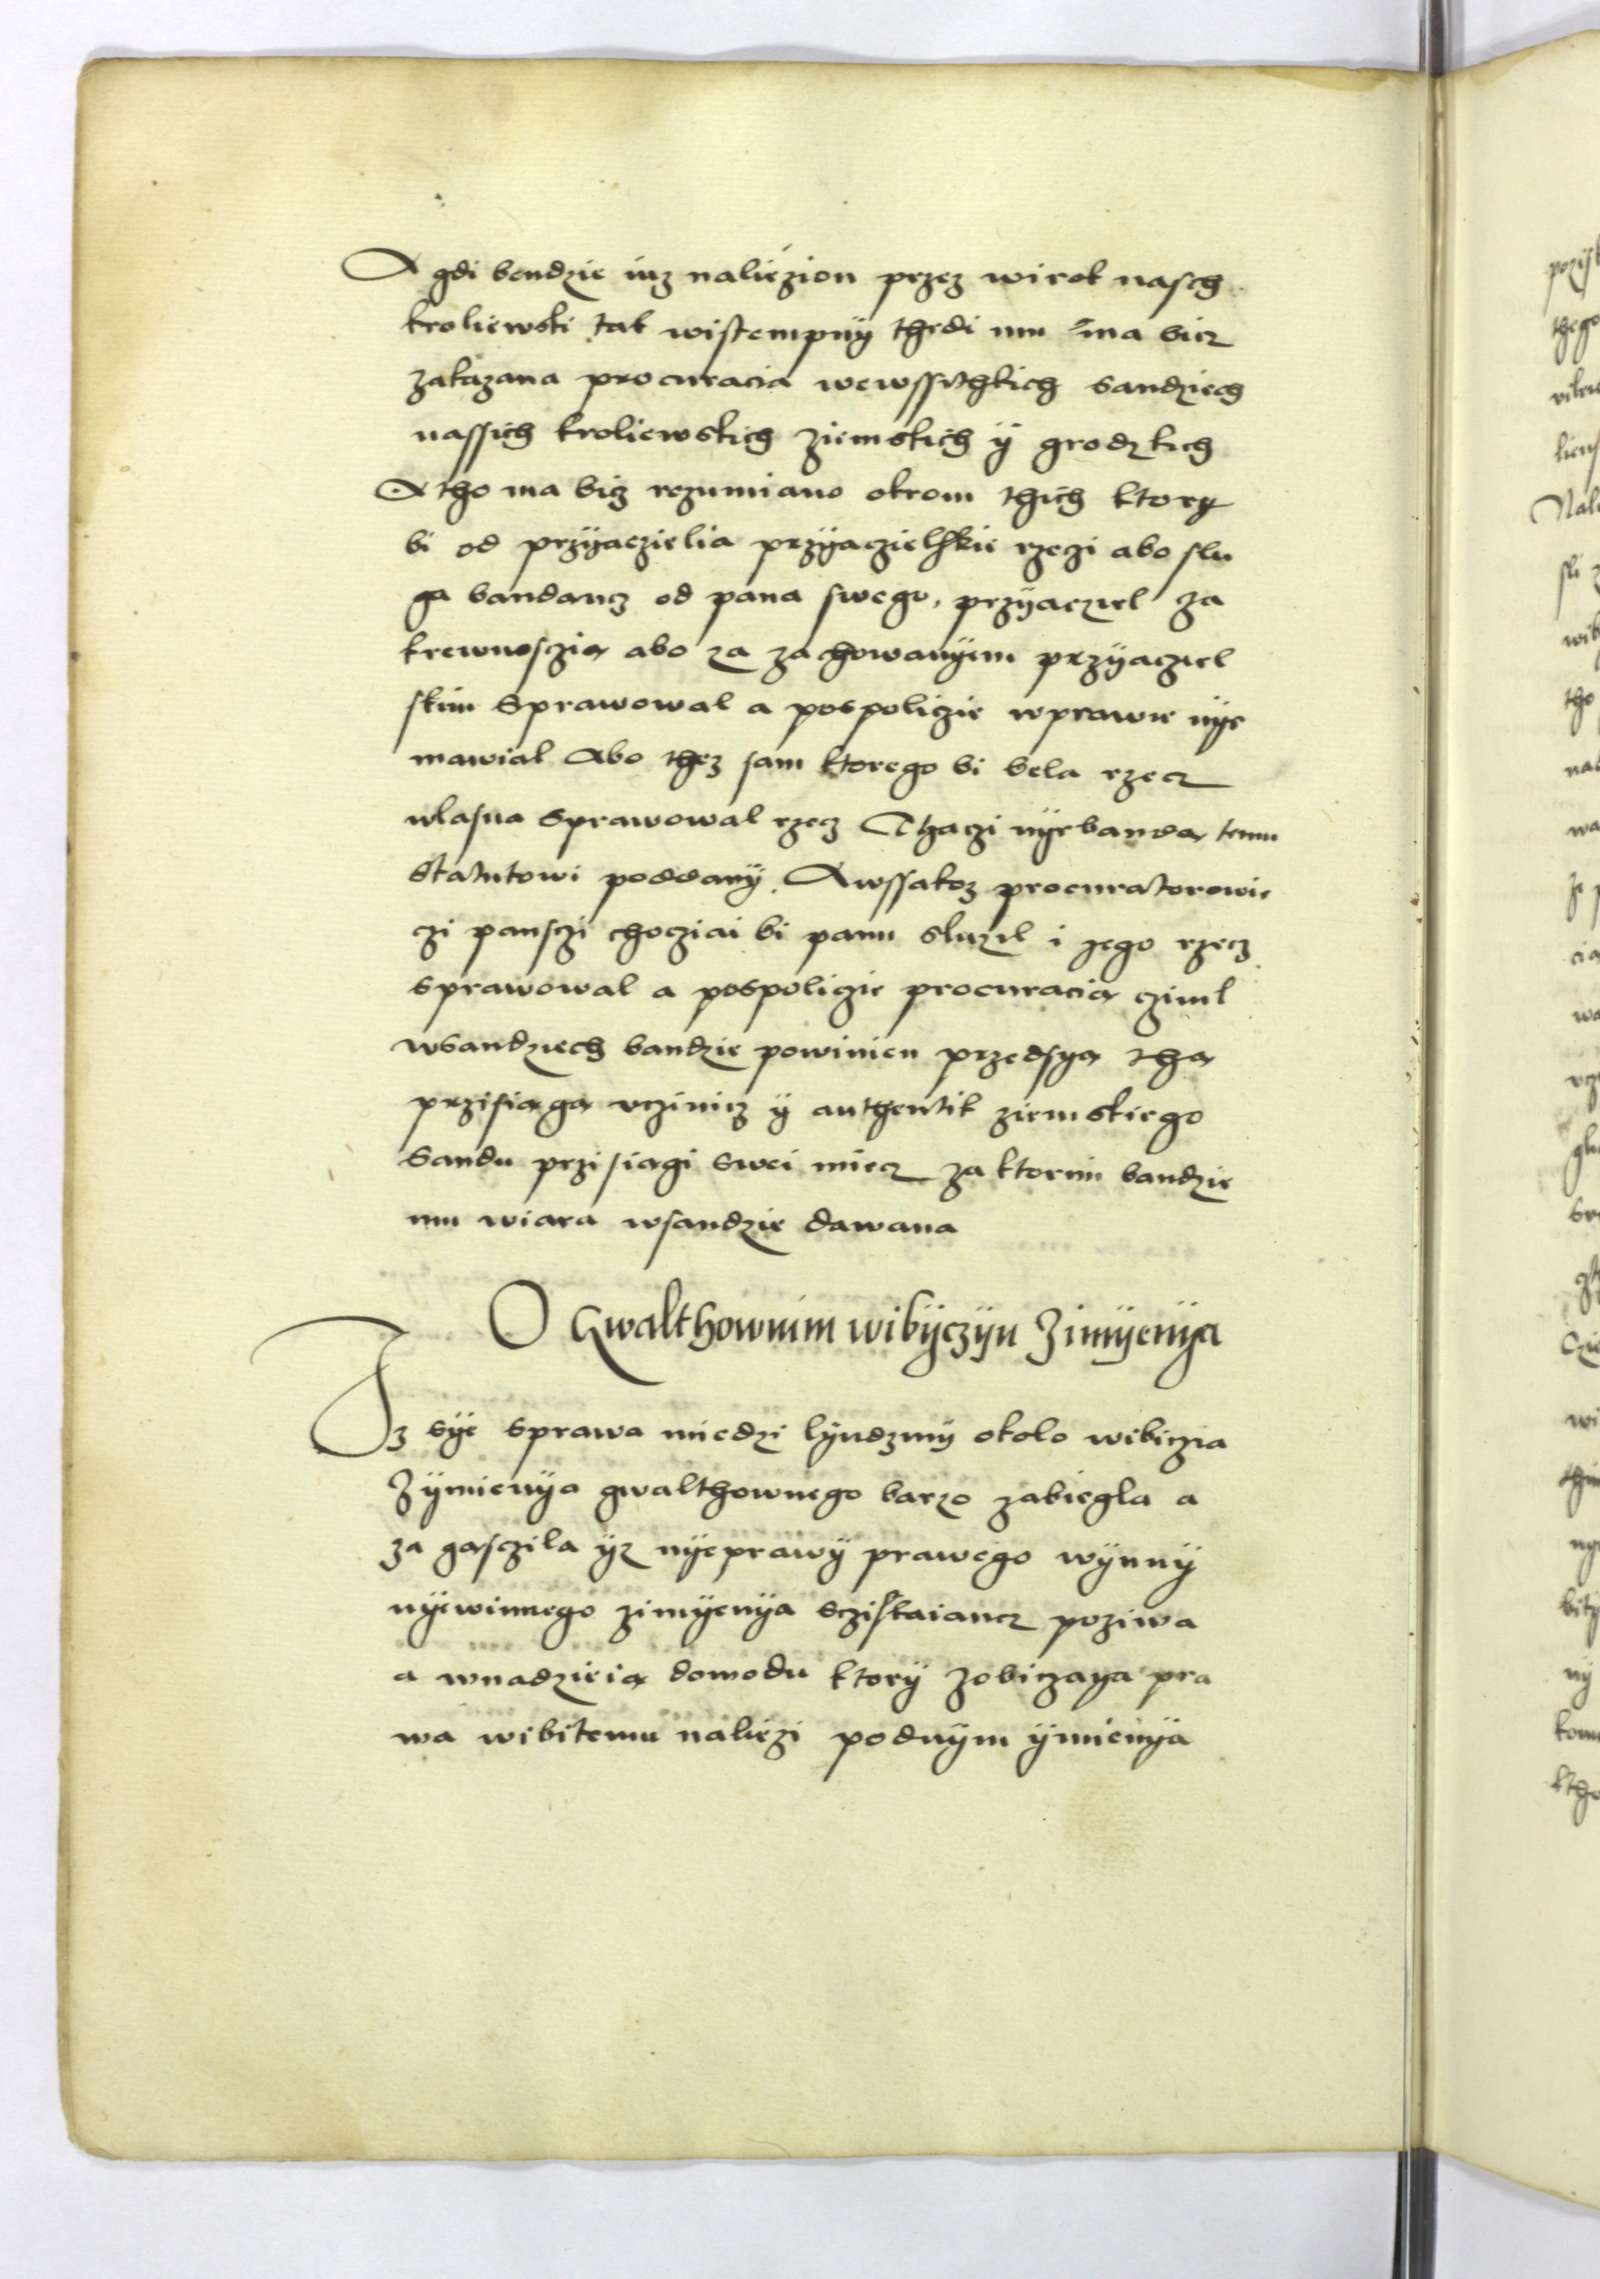 A gdi bendzie iuz naliezion przez wirok nasch
kroliewski tak wistempny thedi mu ma bicz
zakazana procuracia wewssithkich sandziech
nassich kroliewskich ziemskich ÿ grodzkich
A tho ma bicz rozumiano okrom thich ktory
bi od przÿaczielia przÿaczielskie rzeczi abo slu
ga bandancz od pana swego, przÿacziel za
krewnosczią abo za zachowanÿem przÿacziel
skim sprawowal a pospoliczie wprawie nÿe
mawial Abo thez sam ktorego bi bela rzecz
wlasna sprawowal rzecz A thaczi nÿe bandą temu
statutowi poddanÿ. A wssakoz procuratorowie
czi pansczi chocziai bi panu sluzil i jego rzecz
sprawowal a pospoliczie procuracią czinil
wsandziech bandzie powinien przedsÿą thą
przisięgą vczinicz ÿ authentik ziemskiego
sandu przisięgi swei miecz za ktorim bandzie
mu wiara wsandzie dawana
O Gwalthownim wibÿczÿu Zimÿenÿa
Iz sÿe sprawa miedzi lÿudzmÿ okolo wibiczia
Zÿmienÿa gwalthownego barzo zabiegla a
za gasczila ÿz nÿeprawÿ prawego wÿnnÿ
nÿewinnego zimÿenÿa sczistaiancz poziwa
a wnadzieią dowodu ktorÿ zobiczaya pra
wa wibitemu naliezi podnÿm ÿmienÿa